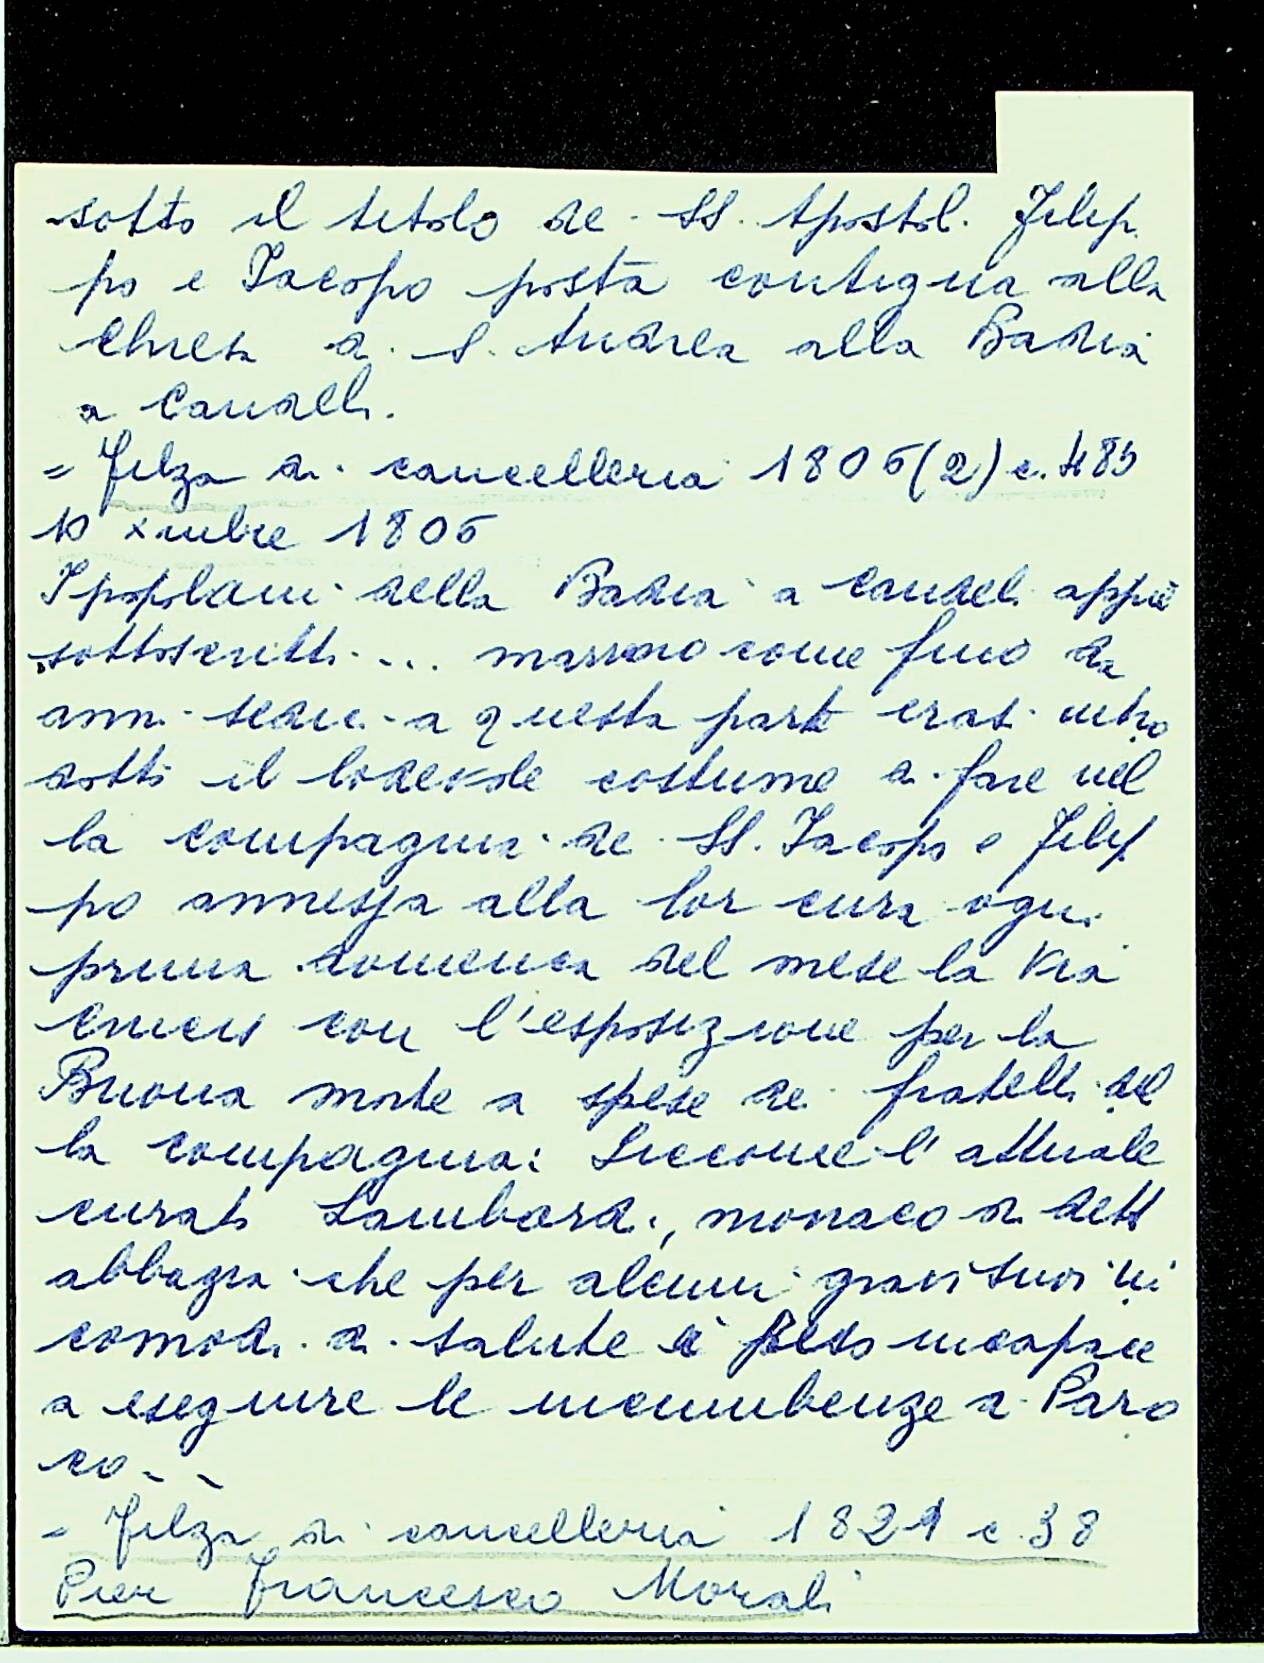 sotto il titolo de SS. Apostol. Filip
po e Jacopo posta contigua alla
chiesa di S. Andrea alla Badia
a Candeli.
= Filza di cancelleria 1806 (2) c. 485
10 xmbre 1806
I popolani della Badia a Candeli appiè
sottoscritti ... come fino da
anni sedici a questa parte erasi intro
dotto il lodevole costume di fare nel
la compagnia de SS. Jacopo e Filip
po annessa alla lor cura ogni
prima domenica del mese la Via
Crucis con l'esposizione per la
Buona morte a spese dei fratelli del
la compagnia: Siccome l'attuale
curato Lambardi, monaco di dett
abbazia che per alcuni gravi suoi in
comodi di salute è reso incapace
a eseguire le incumbenze di Paro
co - -
= Filza di cancelleria 1821 c. 38
Pier Francesco Morali